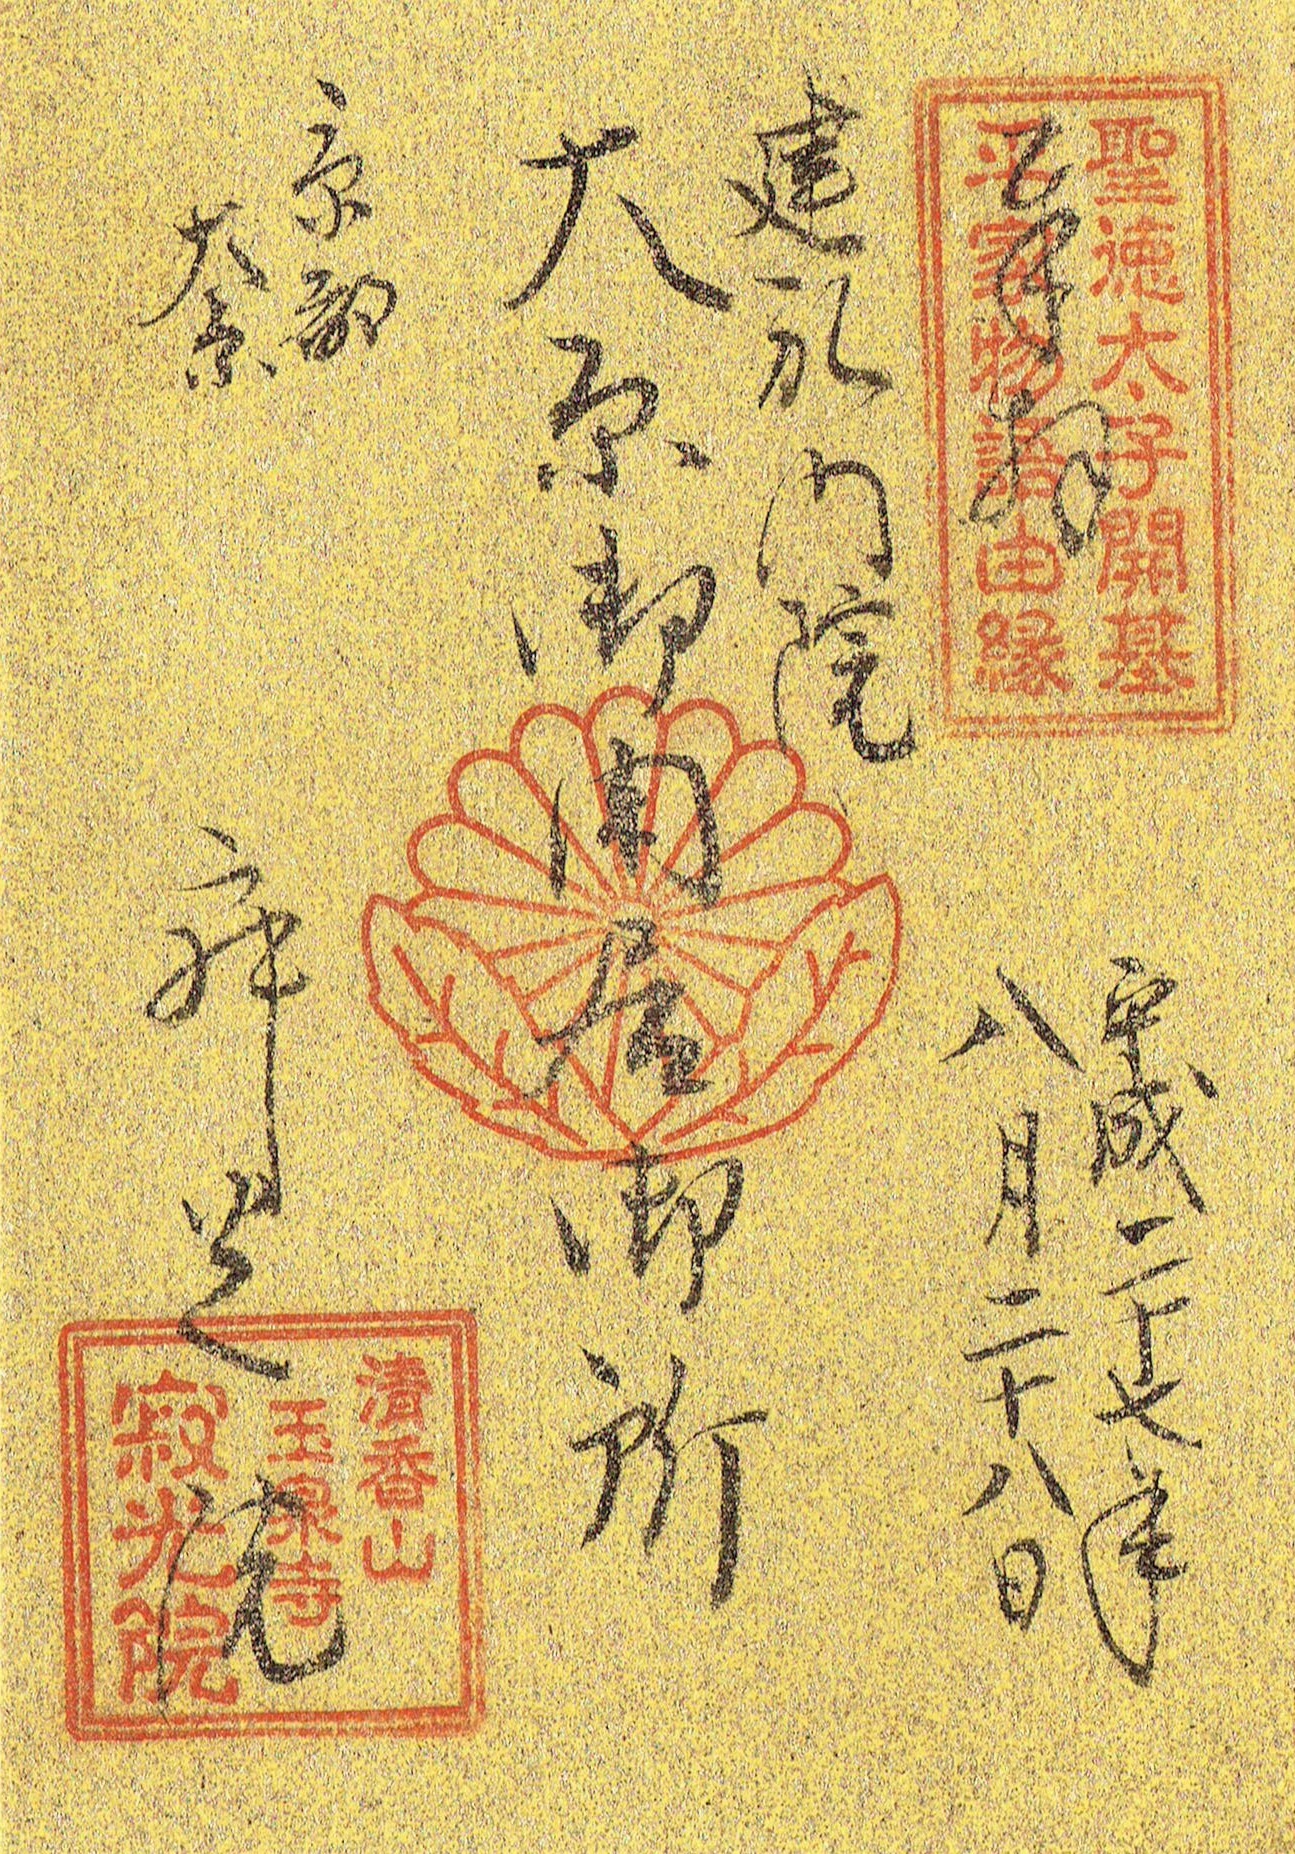 聖徳太子開基
平家物語由緣
奉拝
平成二十七年
八月二十八日
建礼門院
大原御閑居御所
京都
大原
寂光院
清香山
玉泉寺
寂光院